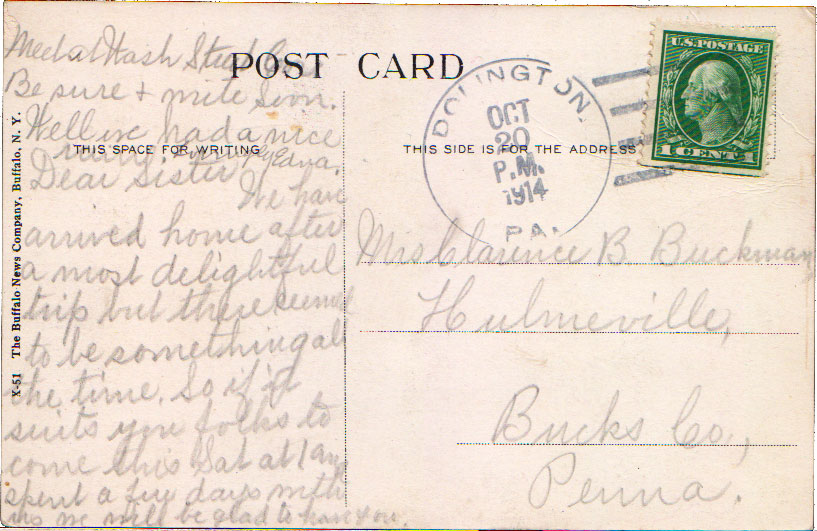 Meet at Wash Street
Be sure + write Soon.
Well we had a nice
Edna.
Dear Sister
We have
arrived home after
a most delightful
trip but there seemed
to be something all
the time. So if it
suits you folks to
come this Sat at 1 and
spent a few days with
us we will be glad to have you.
X-51 The Buffalo News Company, Buffalo, N. Y.
POST CARD
THIS SPACE FOR WRITING
THIS SIDE IS FOR THE ADDRESS
DOLINGTON,
OCT
20
P.M.
1914
PA.
U.S. POSTAGE
1 CENT 1
Mrs Clarence B Buckman
Hulmeville,
Bucks Co,
Penna.